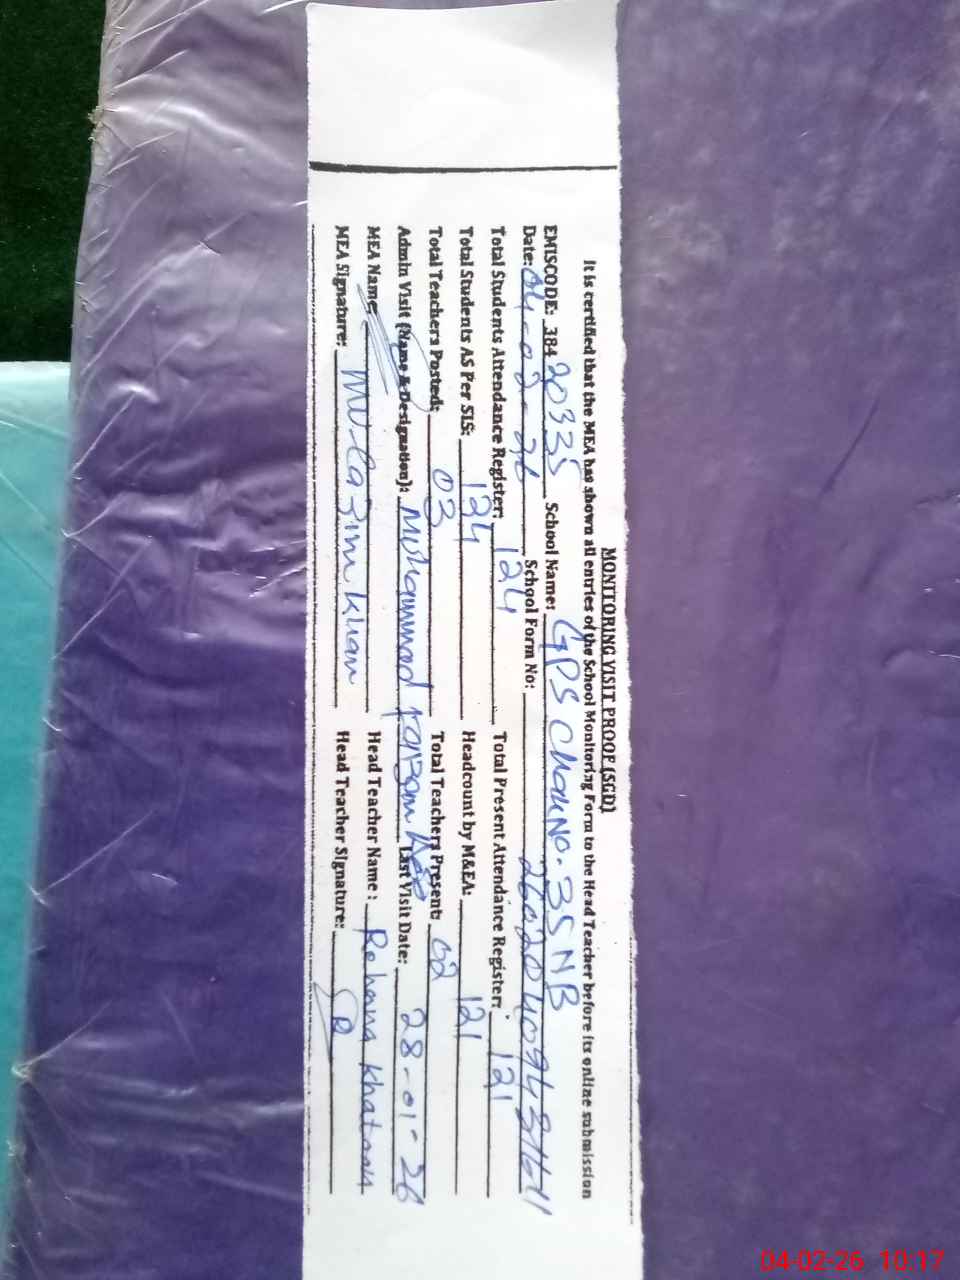 MONITORING VISIT PROOF (SGD)
It is certified that the MEA has shown all entries of the School Monitoring Form to the Head Teacher before its online submission
EMISCODE: 38420335 School Name: GPS Chak No. 35 NB
Date: 04-02-26 School Form No:
Total Students Attendance Register: 124 Total Present Attendance Register: 121
Total Students AS Per SIS: 124 Headcount by M&EA: 121
Total Teachers Posted: 03 Total Teachers Present: 02
Admin Visit (Name & Designation): Muhammad Last Visit Date: 28-01-26
MEA Name: Head Teacher Name: Rehana Khatoon
MEA Signature: Mulazim Khan Head Teacher Signature:
04-02-26 10:17